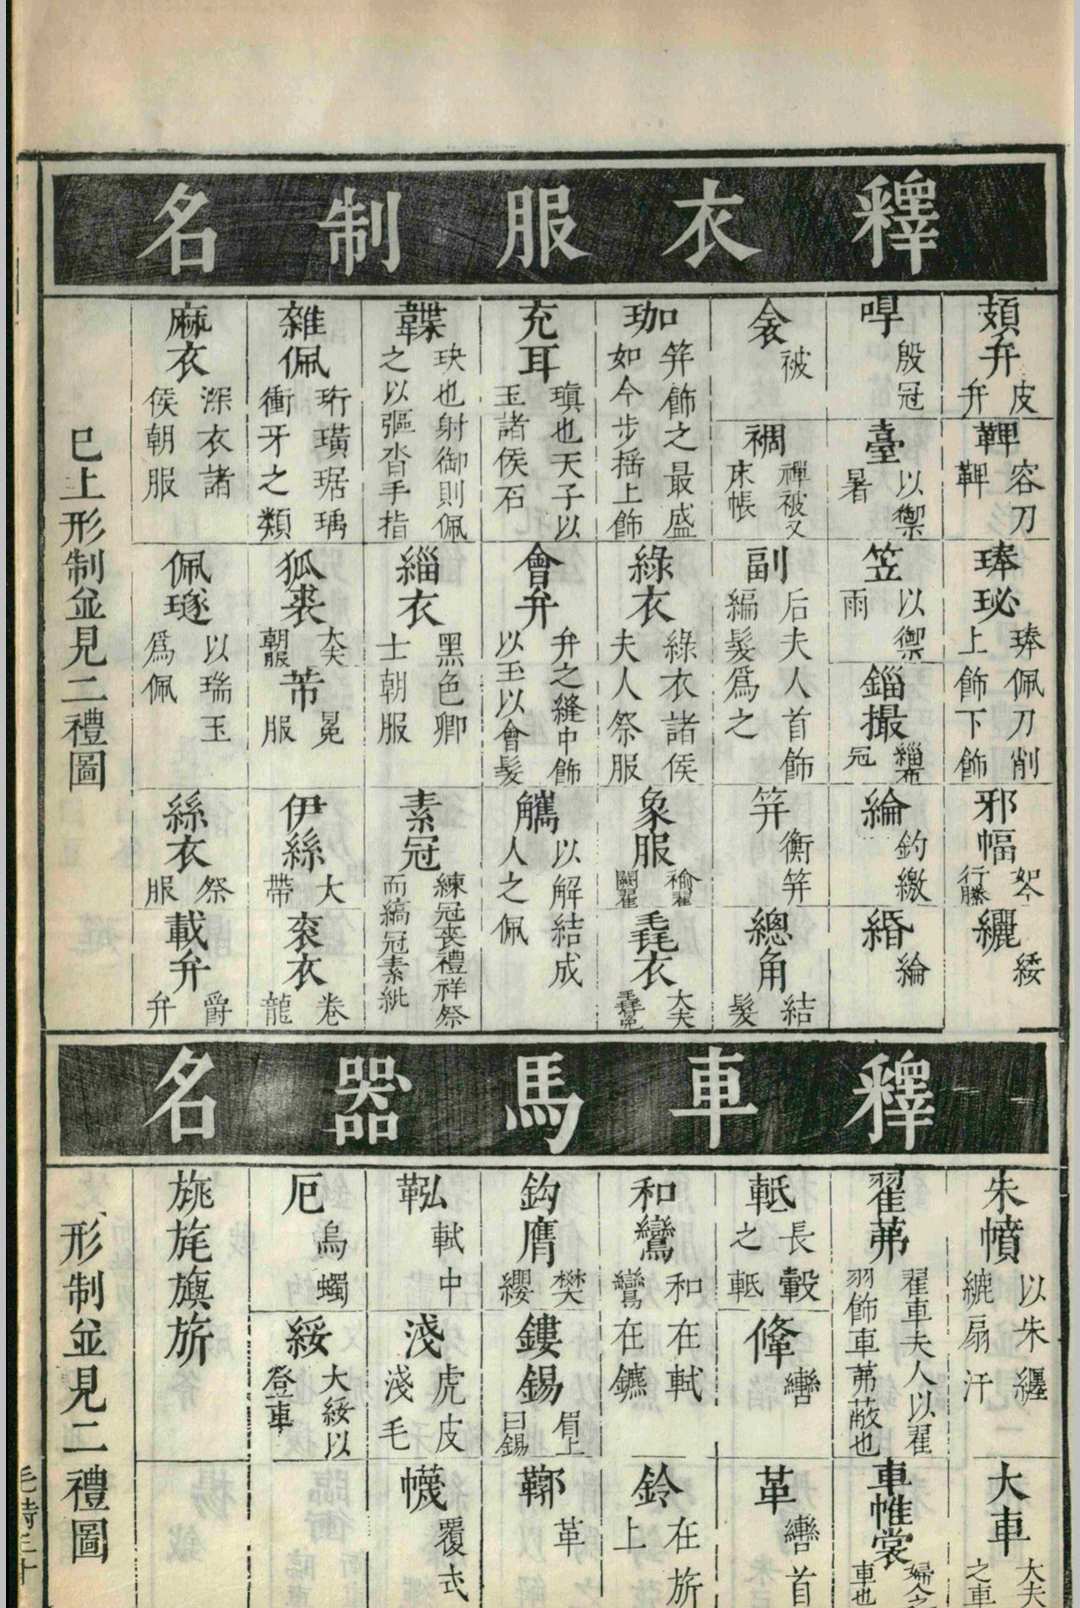 釋衣服制名
頍弁 皮弁
鞞 容刀鞞
琫珌 琫佩刀削上飾下飾
邪幅 如今行縢
纚 緌
冔 殷冠
臺 以禦暑
笠 以禦雨
緇撮 緇布冠
綸 釣繳
緡 綸
衾 被
裯 襌被又床帳
副 后夫人首飾編髮爲之
笄 衡笄
總角 結髮
珈 笄飾之最盛如今步揺上飾
綠衣 綠衣諸侯夫人祭服
象服 褕翟闕翟
毳衣 大夫
充耳 瑱也天子以玉諸侯石
會弁 弁之縫中飾以玉以會髮
觿 以解結成人之佩
韘 玦也射御則佩之以彄沓手指
緇衣 黑色卿士朝服
素冠 練冠䘮禮祥祭而縞冠素紕
雜佩 珩璜琚瑀衝牙之類
狐裘 大夫朝服
芾 冕服
伊絲 大帶
衮衣 卷龍
麻衣 深衣諸侯朝服
佩璲 以瑞玉爲佩
絲衣 祭服
載弁 爵弁
巳上形制並見二禮圖
釋車馬器名
朱幩 以朱纏鑣扇汗
大車 大夫之車
翟茀 翟車夫人以翟羽飾車茀蔽也
車帷裳 婦人之車也
軝 長轂之軝
鞗 轡
革 轡首
和鸞 和在軾鸞在鑣
鈴 在旂上
鈎膺 樊纓
鏤錫 眉上曰錫
鞹 革
鞃 軾中
淺 虎皮淺毛
幭 覆式
厄 烏蠋
綏 大綏以登車
旐旄旟旂
形制並見二禮圖
毛詩三十